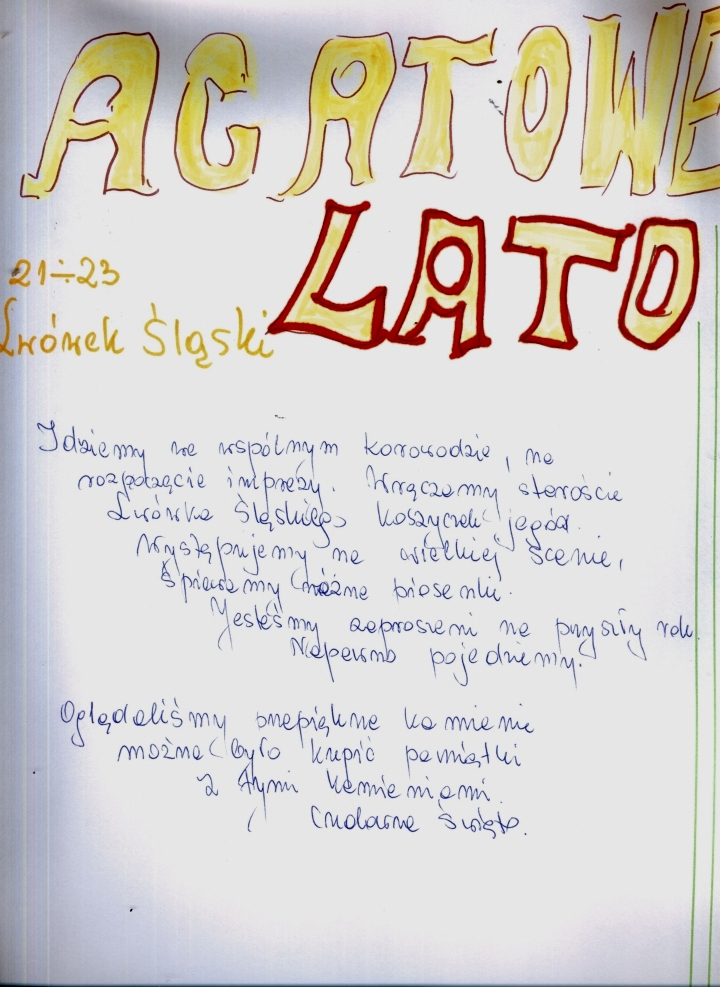 AGATOWE
LATO
21÷23
Lwówek Śląski
Idziemy we wspólnym korowodzie, na
rozpoczęcie imprezy. Wręczamy staroście
Lwówka Śląskiego koszyczek jagód.
Występujemy na wielkiej scenie,
śpiewamy różne piosenki.
Jesteśmy zaproszeni na przyszły rok.
Napewno pojedziemy.
Oglądaliśmy przepiękne kamienie
można było kupić pamiątki
z tymi kamieniami.
Cudowne święto.